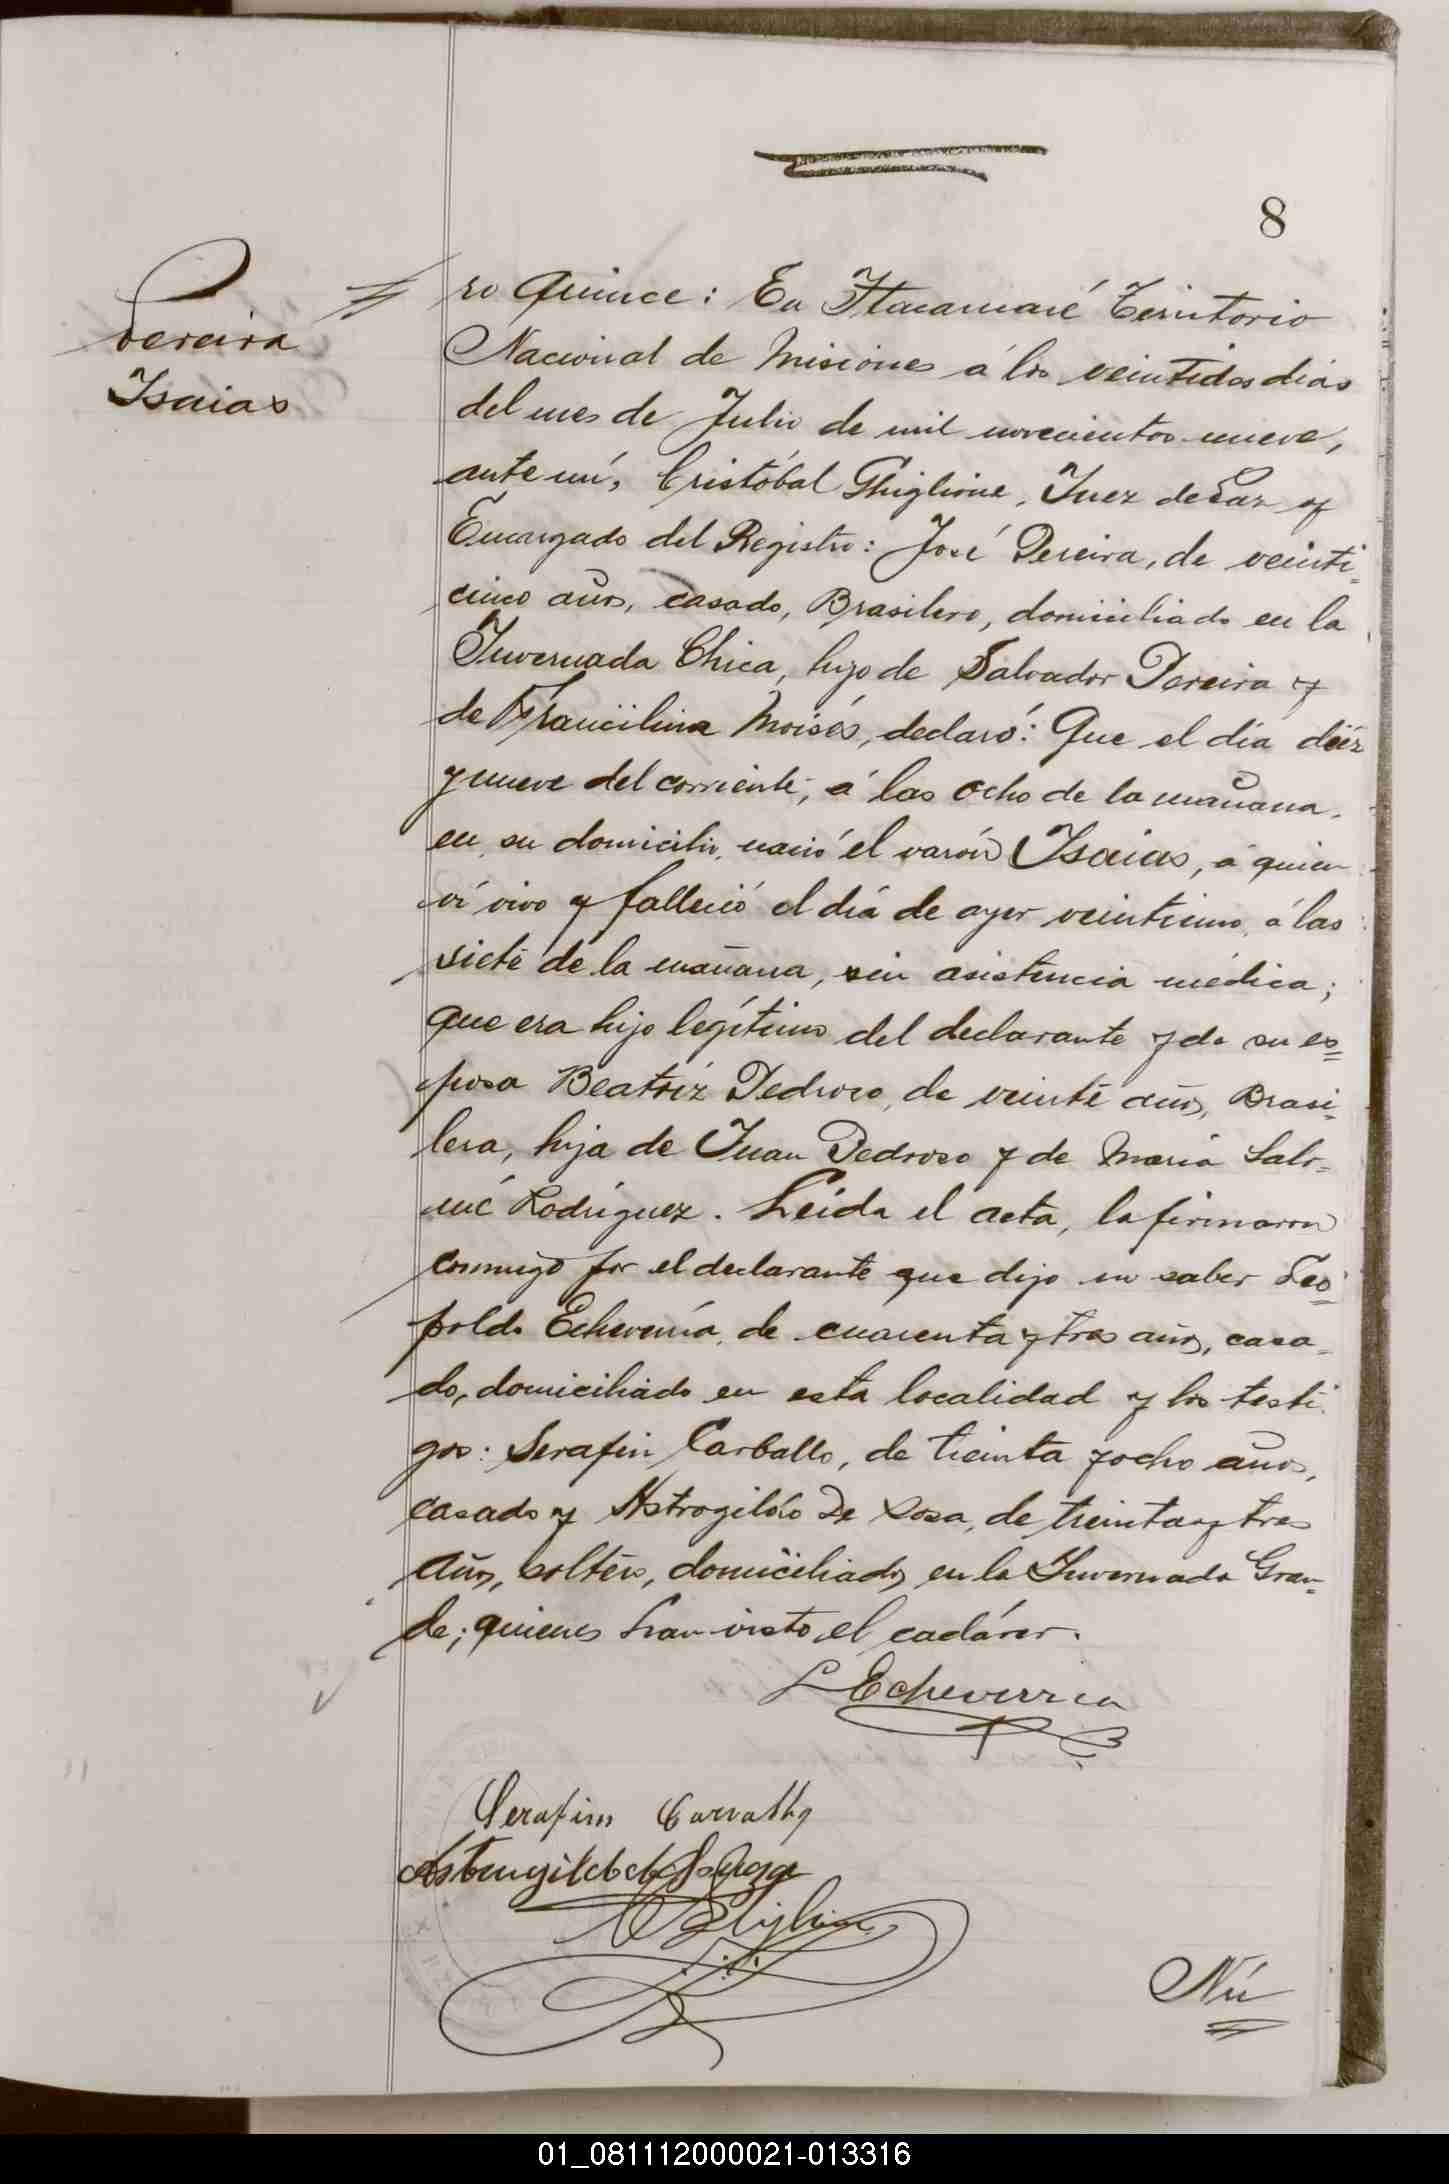 8
Pereira
Isaias
ro quince: En Itacaruaré Territorio
Nacional de Misiones á los veintidos dias
del mes de Julio de mil novecientos nueve,
ante mí, Cristóbal Ghiglione, Juez de Paz y
Encargado del Registro: José Pereira, de veinti=
cinco años, casado, Brasilero, domiciliado en la
Invernada Chica, hijo de Salvador Pereira y
de Francilina Moisés, declaró: Que el día diéz
y nueve del corriente, á las ocho de la mañana,
en su domicilio, nació el varón Isaias, á quien
ví vivo y falleció el día de ayer veintiuno, á las
siete de la mañana, sin asistencia médica;
que era hijo legítimo del declarante y de su es=
posa Beatríz Pedroso, de veinte años, Brasi=
lera, hija de Juan Pedroso y de María Salo=
mé Rodríguez. Leída el acta, la firmaron
conmigo por el declarante que dijo no saber Leo=
poldo Echeverría, de cuarenta y tres años, casa=
do, domiciliado en esta localidad y los testi=
gos: Serafin Carballo, de treinta y ocho años,
casado y Astrogildo De Sosa, de treinta y tres
años, soltero, domiciliados en la Invernada Gran=
de; quienes han visto el cadáver.
L Echeverria
Serafim Carvalho
Nú
01_081112000021-013316